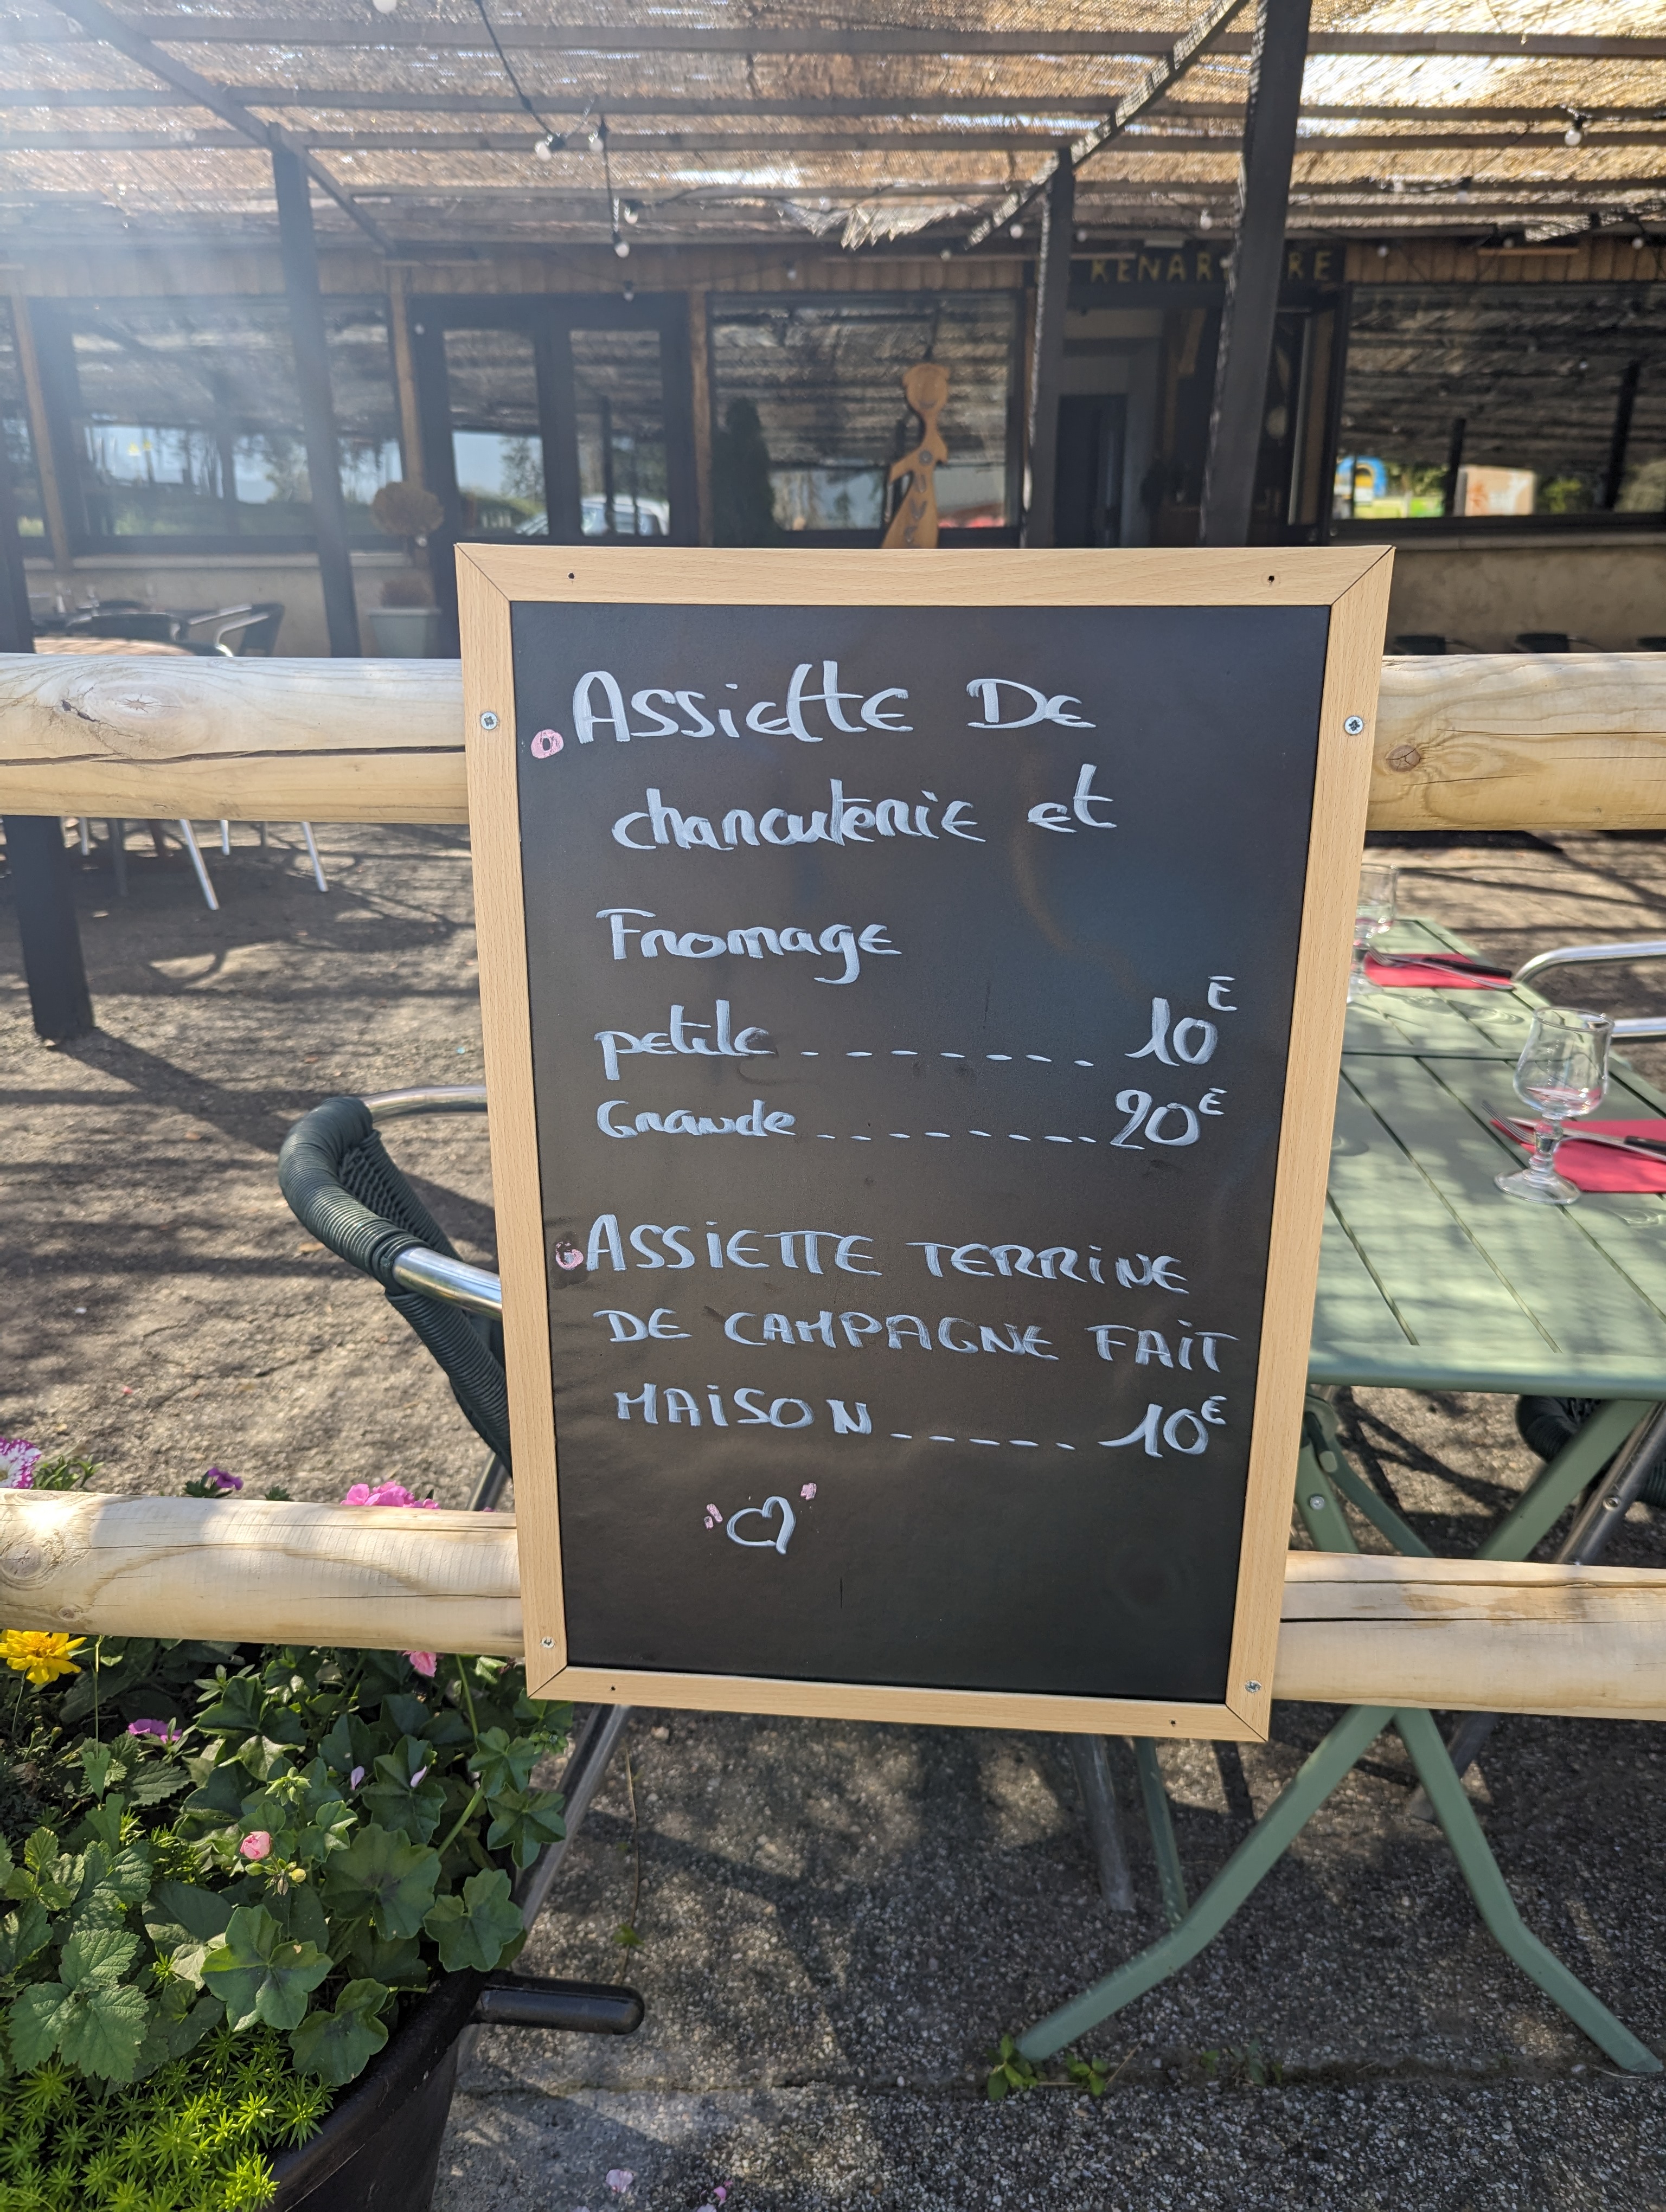 RENAR RE
Assiette De
charcuterie et
Fromage
petite . - - - - - - - 10€
Grande - - - - - - - - 20€
ASSIETTE TERRINE
DE CAMPAGNE FAIT
MAISON - - - - - 10€